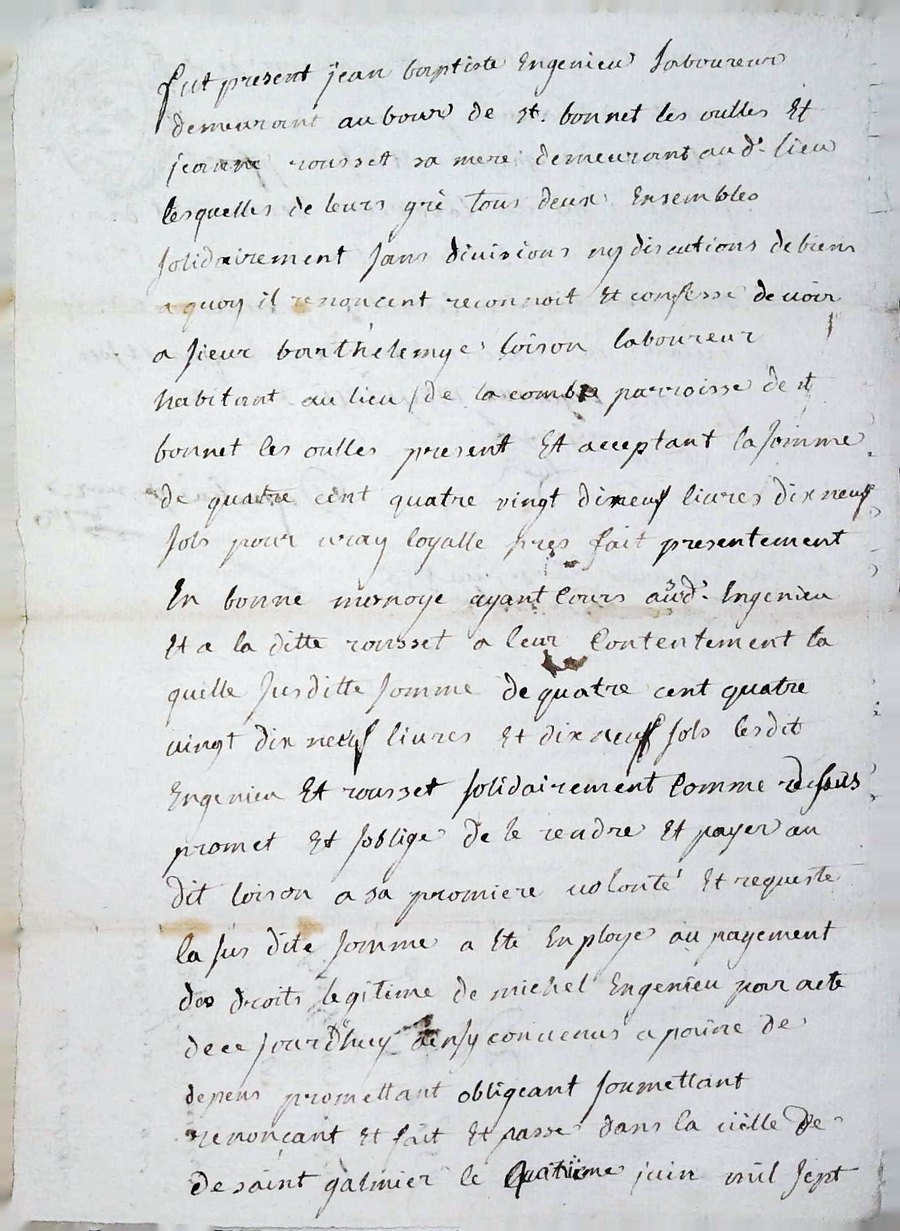 fut present jean baptiste Engenieu laboureur
demeurant au bour de st. bonnet les oulles Et
jeanne rousset sa mere demeurant aud. lieu
lesquelles de leurs gré tous deux Ensembles
solidairement sans divisions ny discutions de biens
a quoy il renoncent reconnoit Et confesse devoir
a sieur barthelemye loison laboureur
habitant au lieu de la combe parroisse de st
bonnet les oulles present Et acceptant la somme
de quatre cent quatre vingt dixneuf livres dix neuf
sols pour vray loyalle pres fait presentement
En bonne monoye ayant Cours aud. Ingenieu
Et a la ditte rousset a leur Contentement la
quelle susditte somme de quatre cent quatre
vingt dix neuf livres Et dix neuf sols lesdit
Engenieu Et rousset solidairement Comme dessus
promet Et soblige de le rendre Et payer au
dit loison a sa promiere volonté Et requeste
la sus dite somme a Ete Employe au payement
des droits legitime de michel Engenieu par acte
de ce jourdhuy ainsy convenus a paine de
depens promettant obligeant soumettant
renonçant Et fait Et passe dans la vielle de
de saint galmier le quatrieme juin mil sept